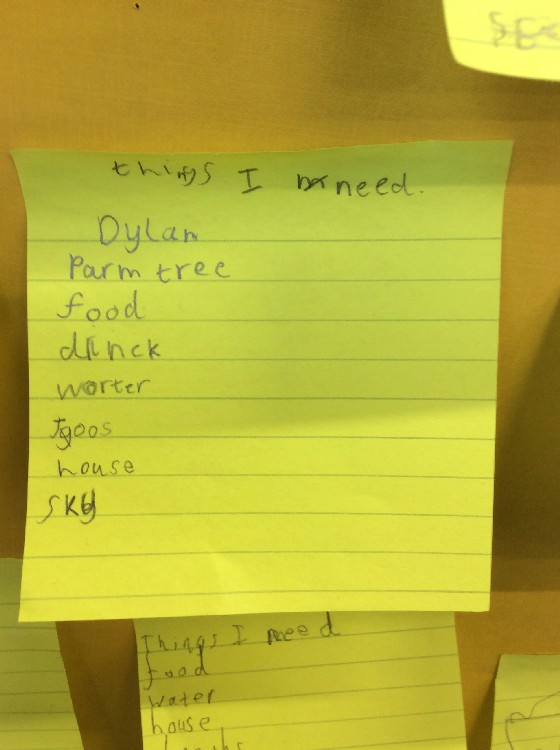 things I need.
Dylan
Parm tree
food
drinck
worter
house
sky
Things I need
food
water
house